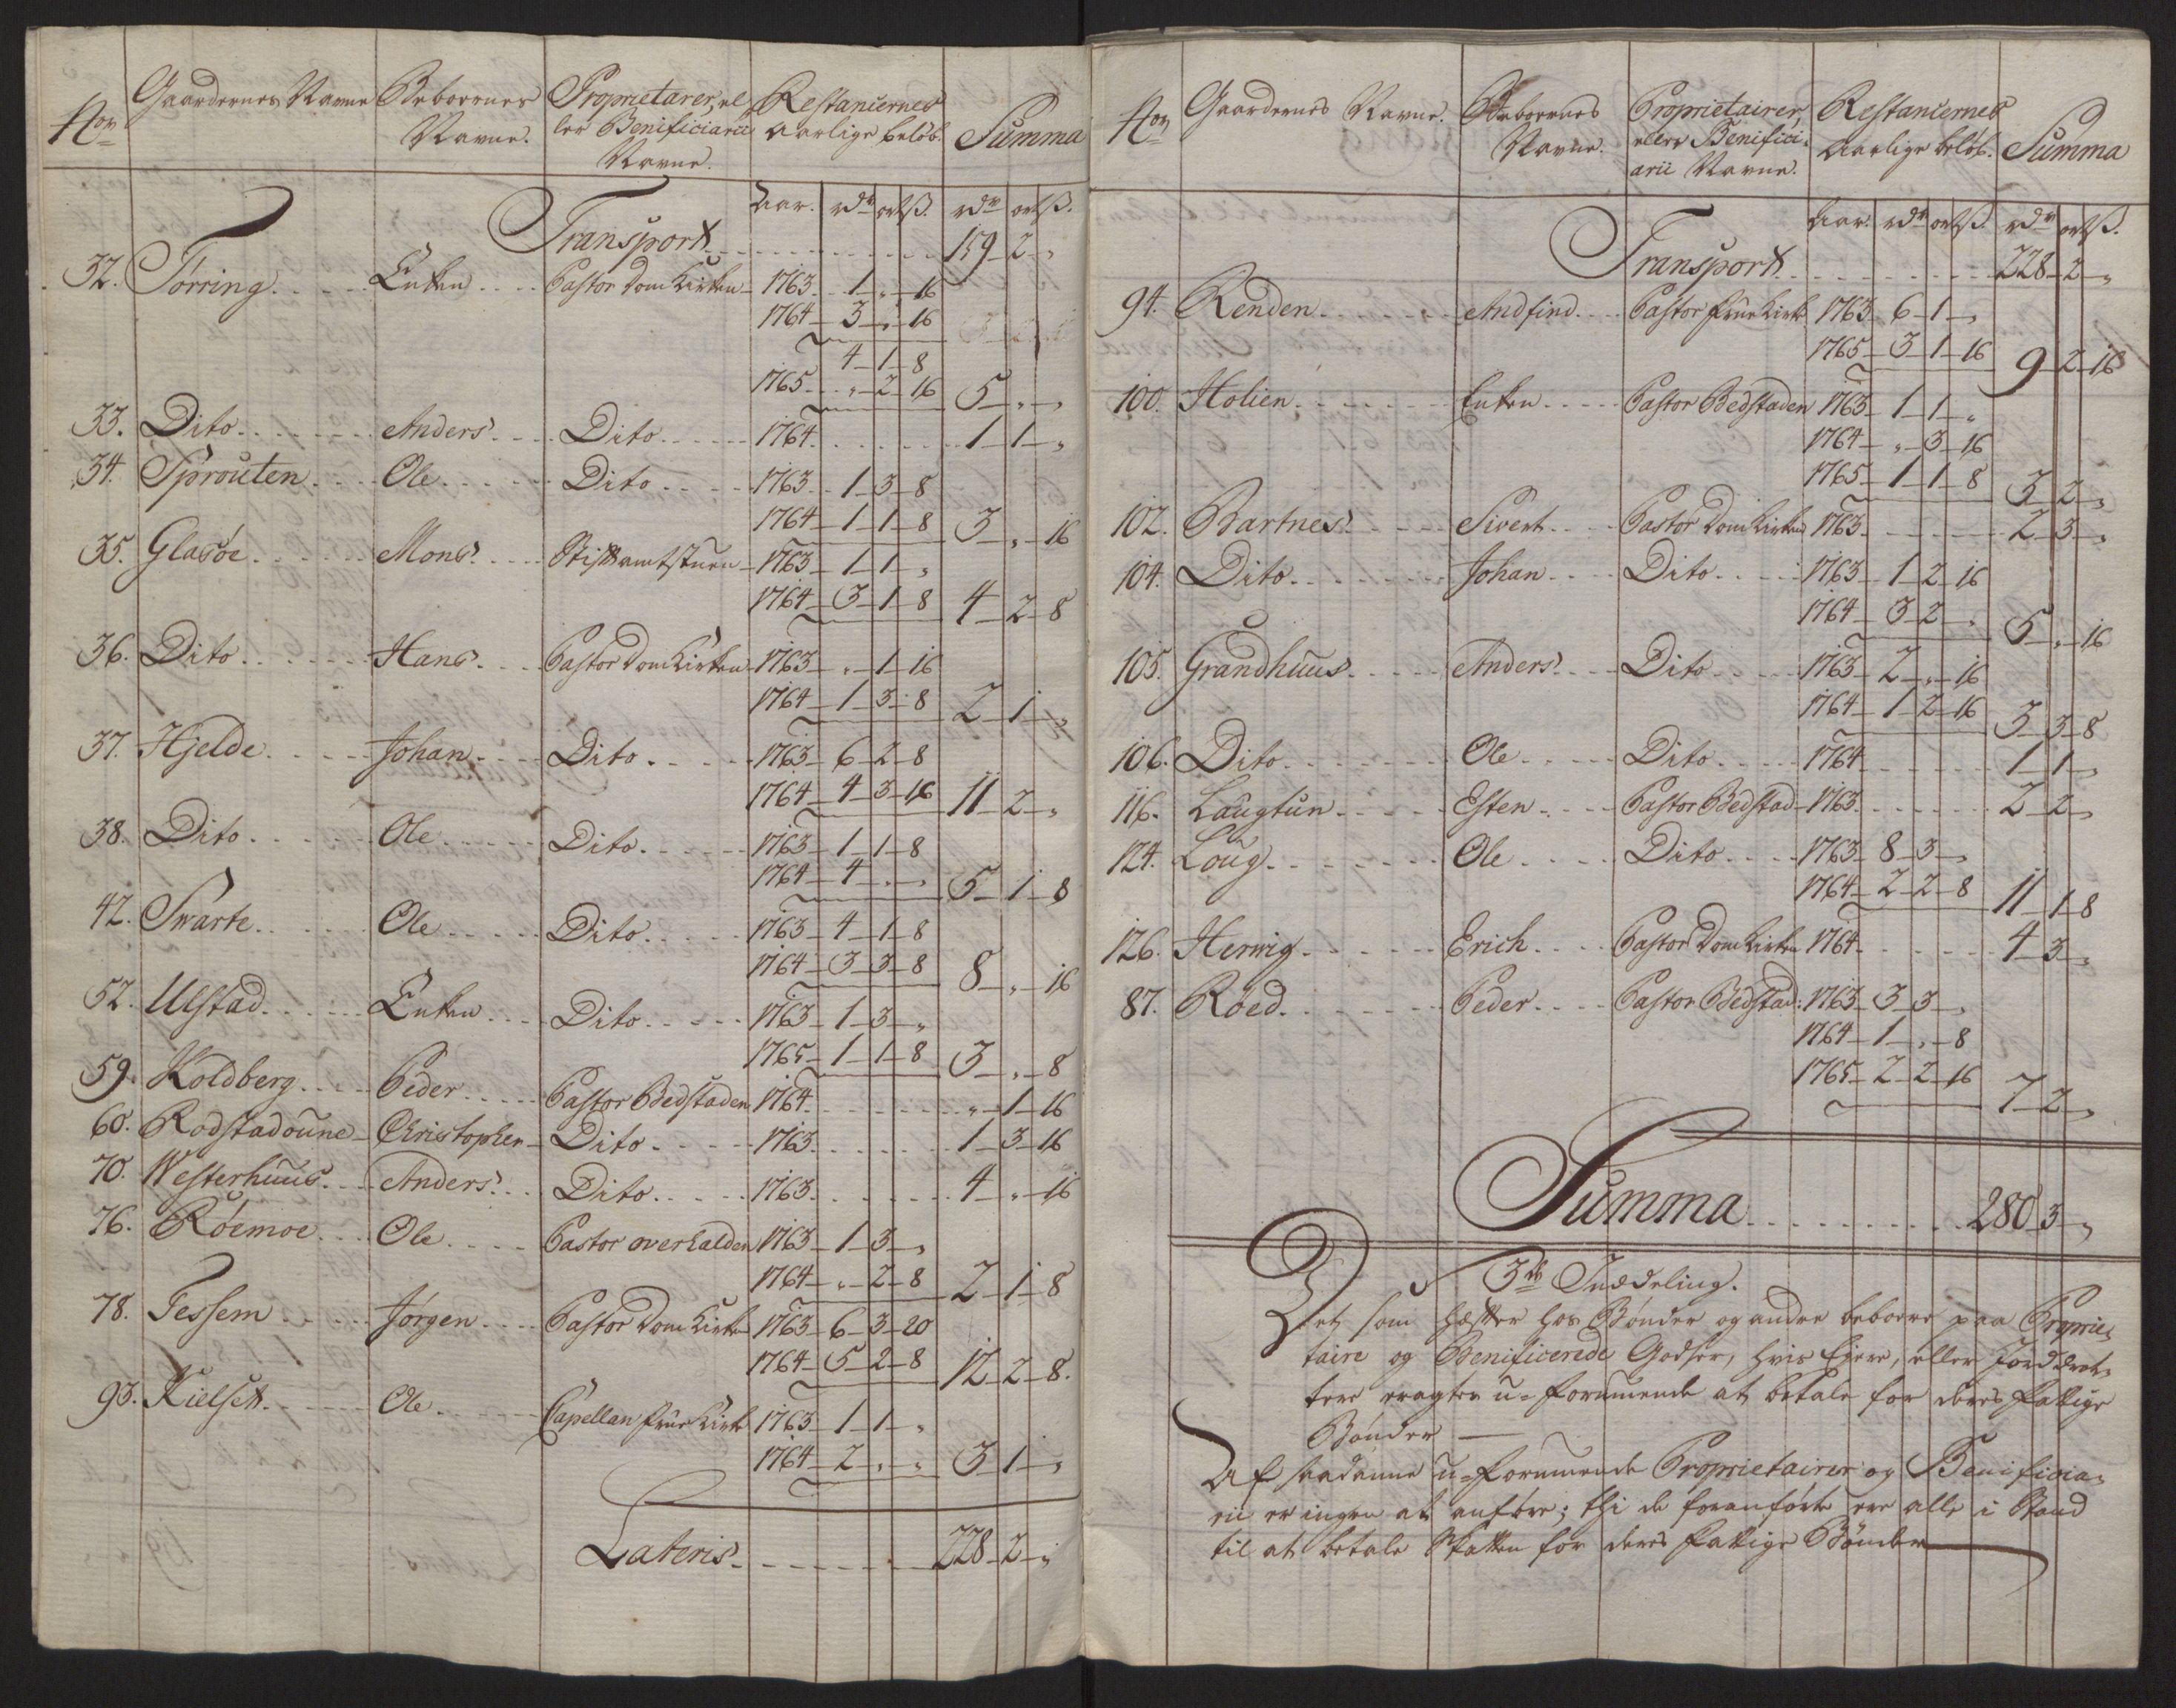 No Gaardernes Navne Beboernes Proprietarer, el Restancernes
Navne. ler Benificiarii aarlige beløb. Summa
Navne.
Aar. rdr ort ß. rdr ort ß.
Transport . . . 159 - 2 - „
32. Tørring . . . Enken . . . Pastor Dom Kirken - 1763 - 1 - „ - 16
1764 - 3 - „ - 16
4 - 1 - 8
1765 - „ - 2 - 16 5 - „ - „
33. Dito . . . Anders . . . Dito . . . 1764 . . . 1 - 1 - „
34. Sprouten . . . Ole . . . Dito . . . 1763 - 1 - 3 - 8
1764 - 1 - 1 - 8 3 - „ - 16
35. Glasøe . . . Mons . . . Stiftamtstuen - 1763 - 1 - 1 - „
1764 - 3 - 1 - 8 4 - 2 - 8
36. Dito . . . Hans . . . Pastor Dom Kirken - 1763 - „ - 1 - 16
1764 - 1 - 3 - 8 2 - 1 - „
37. Hjelde . . . Johan . . . Dito . . . 1763 - 6 - 2 - 8
1764 - 4 - 3 - 16 11 - 2 - „
38. Dito . . . Ole . . . Dito . . . 1763 - 1 - 1 - 8
1764 - 4 - „ - „ 5 - 1 - 8
42. Swarte . . . Ole . . . Dito . . . 1763 - 4 - 1 - 8
1764 - 3 - 3 - 8 8 - „ - 16
52. Ulstad . . . Enken . . . Dito . . . 1763 - 1 - 3 - „
1765 - 1 - 1 - 8 3 - „ - 8
59. Koldberg . . . Peder . . . Pastor Bedstaden 1764 . . . „ - 1 - 16
60. Rodstadoune - Christopher - Dito . . . 1763 . . . 1 - 3 - 16
70. Westerhuus . . . Anders . . . Dito . . . 1763 . . . 4 - „ - 16
76. Røemoe . . . Ole . . . Pastor overhalden 1763 - 1 - 3 - „
1764 - „ - 2 - 8 2 - 1 - 8
78. Fessem . . . Jørgen . . . Pastor Dom Kirken 1763 - 6 - 3 - 20
1764 - 5 - 2 - 8 12 - 2 - 8.
93. Kielset . . . Ole . . . Capellan Frue Kirke 1763 - 1 - 1 - „
1764 - 2 - „ - „ 3 - 1 - „
Lateris . . . 228 - 2 - „
No Gaardernes Navne. Beboernes Proprietairer, Restancernes
Navne. ellers Benifici- aarlige beløb. Summa
arii Navne.
Aar. rdr ort ß. rdr ort ß.
Transport . . . 228 - 2 - „
94. Renden . . . Andfind . . . Pastor Frue Kirke 1763 - 6 - 1 - „
1765 - 3 - 1 - 16 9 - 2 - 16
100. Holien . . . Enken . . . Pastor Bedstaden 1763 - 1 - 1 - „
1764 - „ - 3 - 16
1765 - 1 - 1 - 8 3 - 2 - „
102. Bartnes . . . Sivert . . . Pastor Dom Kirken 1763 . . . 2 - 3 - „
104. Dito . . . Johan . . . Dito . . . 1763 - 1 - 2 - 16
1764 - 3 - 2 - „ 5 - „ - 16
105. Grandhuus . . . Anders . . . Dito . . . 1763 - 2 - „ - 16
1764 - 1 - 2 - 16 3 - 3 - 8
106. Dito . . . Ole . . . Dito . . . 1764 . . . 1 - 1 - „
116. Laugtun . . . Esten . . . Pastor Bedstad - 1763 . . . 2 - 2 - „
124. Loug . . . Ole . . . Dito . . . 1763 - 8 - 3 - „
1764 - 2 - 2 - 8 11 - 1 - 8
126. Herwig . . . Erich . . . Pastor Dom Kirken 1764 . . . 4 - 3 - „
87. Røed . . . Peder . . . Pastor Bedstad: 1763 - 3 - 3 - „
1764 - 1 - „ - 8
1765 - 2 - 2 - 16 7 - 2 - „
Summa . . . 280 3 - „
3de Inddeling.
Det som hæfter hos Bønder og andre beboere paa Proprie-
taire og Benificerede Godser, hvis Ejere, eller Jorddrot-
tere eragtes u-formuende at betale for deres fattige
Bønder —
Af saadanne u-formuende Proprietairer og Benificia-
rii er ingen at anføre; thi de foranførte ere alle i Stand
til at betale Skatten for deres fattige Bønder